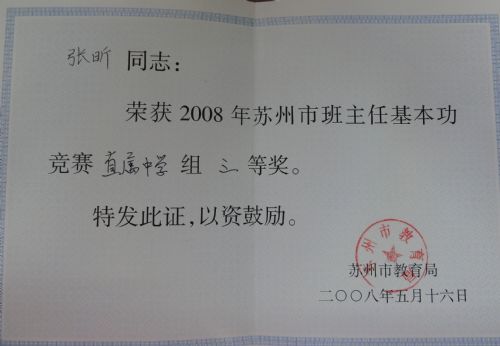 张昕 同志：
荣获 2008 年苏州市班主任基本功
竞赛 直属中学 组 三 等奖。
特发此证，以资鼓励。
苏州市教育局
苏州市教育局
二〇〇八年五月十六日